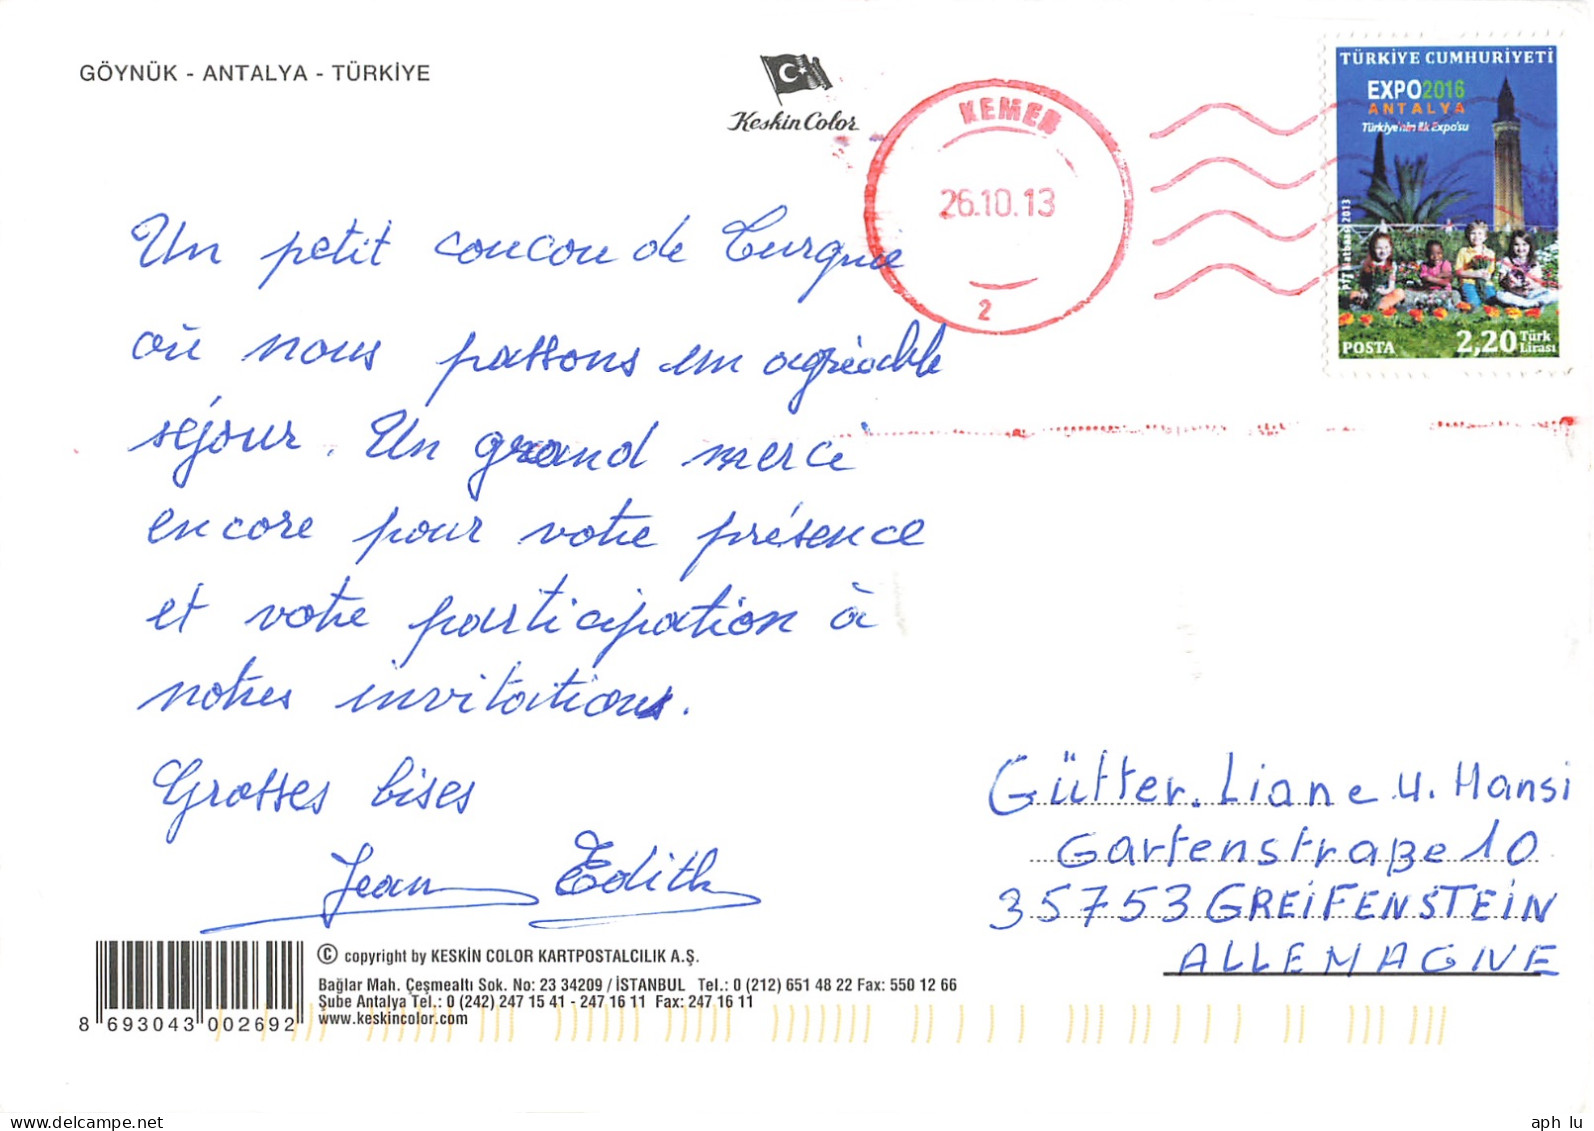 GÖYNÜK - ANTALYA - TÜRKİYE
Keskin Color
KEMER
26.10.13
2
TÜRKİYE CUMHURİYETİ
EXPO2016
ANTALYA
Türkiye'nin ilk Expo'su
2013
POSTA
2,20 Türk Lirası
Un petit coucou de Turquie
où nous passons un agréable
séjour. Un grand merci
encore pour votre présence
et votre participation à
notres invitations.
Grosses bises
Jean Edith
Gütter. Liane u. Hansi
Gartenstraße 10
35753 GREIFENSTEIN
ALLEMAGNE
© copyright by KESKİN COLOR KARTPOSTALCILIK A.Ş.
Bağlar Mah. Çeşmealtı Sok. No: 23 34209 / İSTANBUL Tel.: 0 (212) 651 48 22 Fax: 550 12 66
Şube Antalya Tel.: 0 (242) 247 15 41 - 247 16 11 Fax: 247 16 11
www.keskincolor.com
8 693043 002692
delcampe.net
aph lu